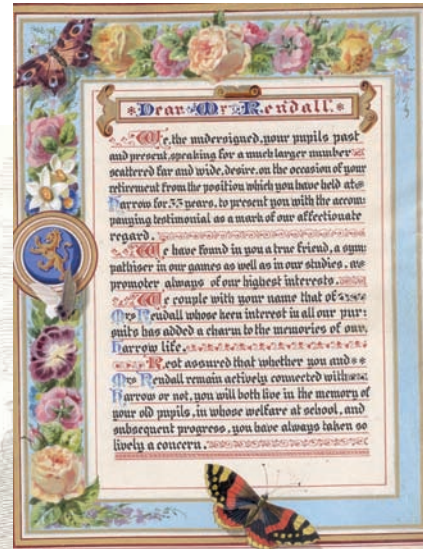 Dear Mr Rendall.
We, the undersigned, your pupils past
and present, speaking for a much larger number
scattered far and wide, desire, on the occasion of your
retirement from the position which you have held at
Harrow for 33 years, to present you with the accom
panying testimonial as a mark of our affectionate
regard.
We have found in you a true friend, a sym:
pathiser in our games as well as in our studies, a
promoter always of our highest interests.
We couple with your name that of
Mrs Rendall whose keen interest in all our pur:
suits has added a charm to the memories of our
Harrow life.
Rest assured that whether you and
Mrs Rendall remain actively connected with
Harrow or not, you will both live in the memory of
your old pupils, in whose welfare at school, and
subsequent progress, you have always taken so
lively a concern.